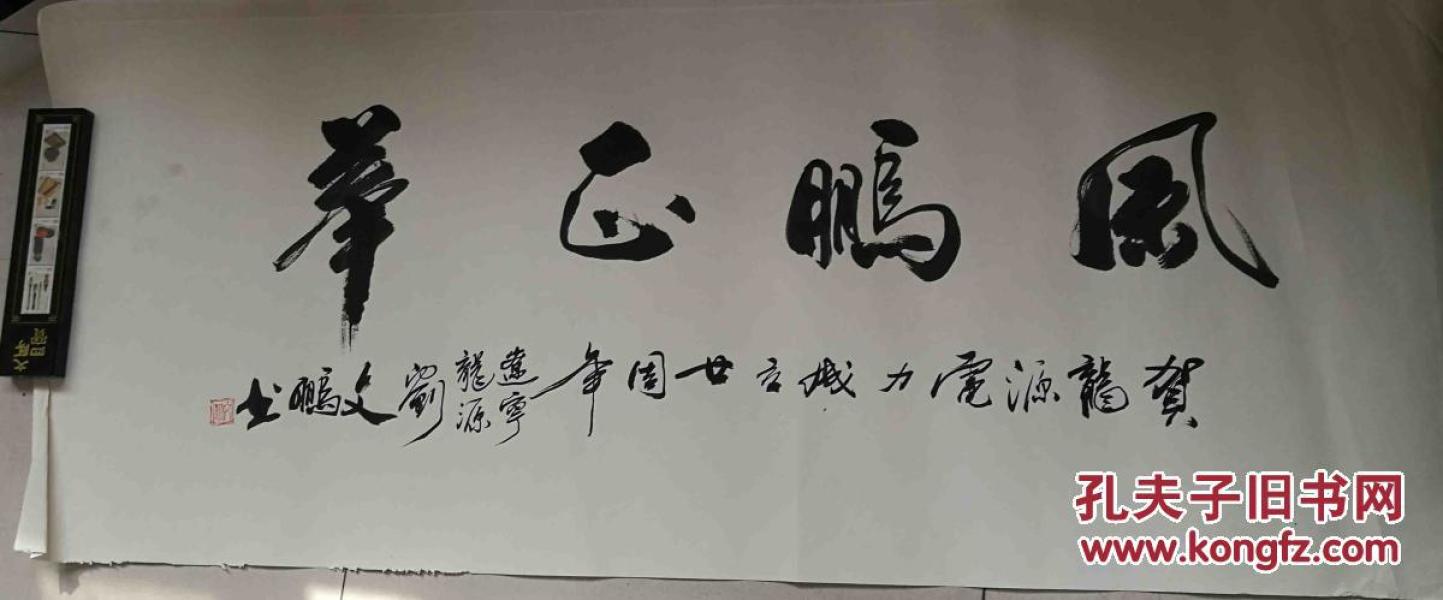 風鵬正華
賀龍源電力成立廿周年
遼寧
龍源
劉文鵬书
文房
四寶
孔夫子旧书网
www.kongfz.com